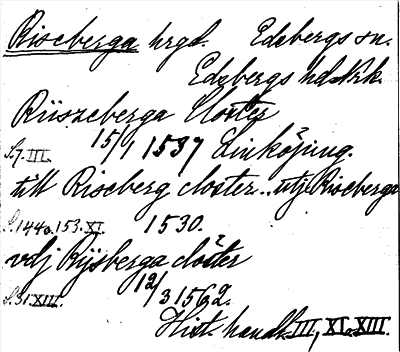 Riseberga hrgd. Edsbergs sn.
Edsbergs hd. Nrk.
Riiszeberga Closter
S.7.III. 15/1 1537 Linköping.
till Riseberg closter..utj Riseberga
S.144 o.153.XI. 1530.
vdj Rijsberga clöster
S.31.XIII. 12/3 1562.
Hist. handl. III, XI. XIII.